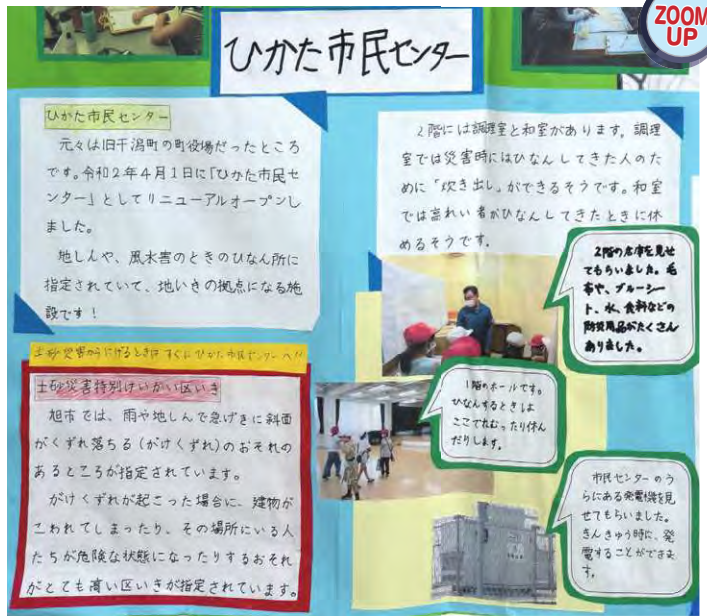 ZOOM
UP
ひかた市民センター
ひかた市民センター
元々は旧干潟町の町役場だったところ
です。令和2年4月1日に「ひかた市民セ
ンター」としてリニューアルオープンし
ました。
地しんや、風水害のときのひなん所に
指定されていて、地いきの拠点になる施
設です!
土砂災害からにげるときは すぐに ひかた市民センターへ!!
土砂災害特別けいかい区いき
旭市では、雨や地しんで急げきに斜面
がくずれ落ちる(がけくずれ)のおそれの
あるところが指定されています。
がけくずれが起こった場合に、建物が
こわれてしまったり、その場所にいる人
たちが危険な状態になったりするおそれ
がとても高い区いきが指定されています。
2階には調理室と和室があります。調理
室では災害時にはひなんしてきた人のた
めに「炊き出し」ができるそうです。和室
では高れい者がひなんしてきたときに休
めるそうです。
2階の倉庫を見せ
てもらいました。毛
布や、ブルーシー
ト、水、食料などの
防災用品がたくさん
ありました。
1階のホールです。
ひなんするときは
ここでねむったり休ん
だりします。
市民センターのう
らにある発電機を見
せてもらいました。
きんきゅう時に、発
電することができま
す。